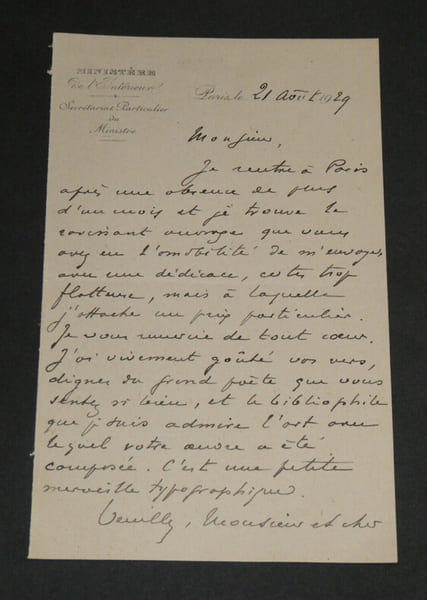 MINISTÈRE
de l'Intérieur
Secrétariat Particulier
du
Ministre
Paris, le 21 Août 1929
Monsieur,
Je rentre à Paris
après une absence de plus
d'un mois et je trouve le
ravissant ouvrage que vous
avez eu l'amabilité de m'envoyer
avec une dédicace, certes trop
flatteuse, mais à laquelle
j'attache un prix particulier.
Je vous remercie de tout cœur.
J'ai vivement goûté vos vers,
dignes du grand poète que vous
sentez si bien, et le bibliophile
que je suis admire l'art avec
lequel votre œuvre a été
composée. C'est une petite
merveille typographique.
Veuillez, Monsieur et cher